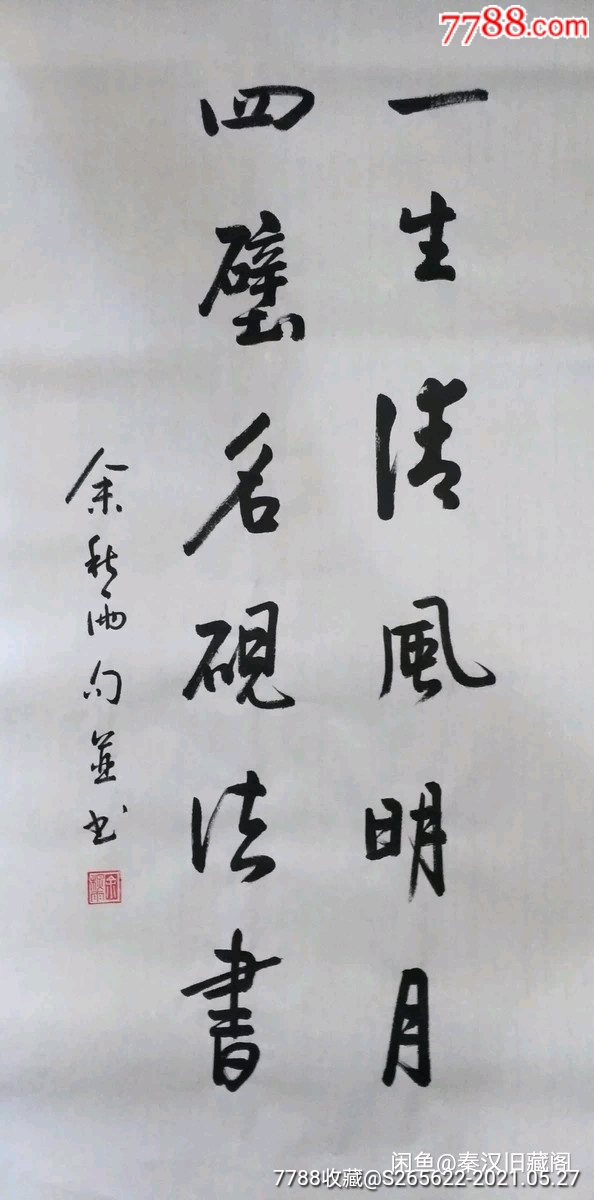 7788.com
一生清風明月
四壁名硯法書
余秋雨句並书
闲鱼@秦汉旧藏阁
7788收藏@S265622-2021.05.27